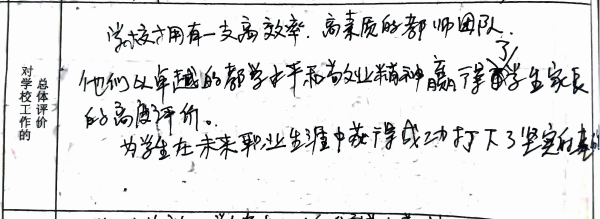 对学校工作的
总体评价
学校拥有一支高效率、高素质的教师团队，
他们以卓越的教学水平和敬业精神赢得了学生家长
的高度评价。
为学生在未来职业生涯中获得成功打下了坚实的基